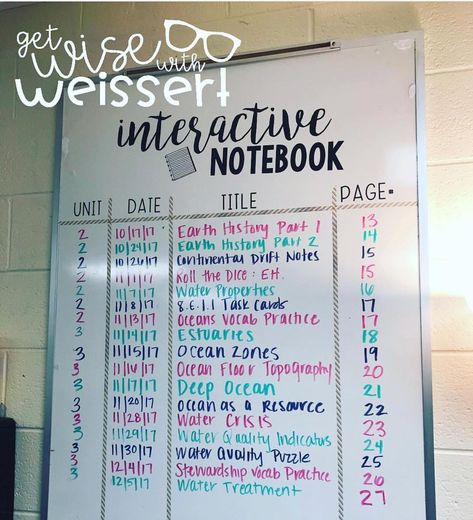 get
wise
with
weissert
interactive
NOTEBOOK
UNIT DATE TITLE PAGE.
2 10/17/17 Earth History Part 1 13
2 10/24/17 Earth History Part 2 14
2 10/26/17 Continental Drift Notes 15
2 11/1/17 Roll the Dice: EH. 15
2 11/7/17 Water Properties 16
2 11/8/17 8.E.1.1 Task Cards 17
2 11/13/17 Oceans Vocab Practice 17
3 11/14/17 Estuaries 18
3 11/15/17 Ocean Zones 19
3 11/16/17 Ocean Floor Topography 20
3 11/17/17 Deep Ocean 21
3 11/20/17 Ocean as a Resource 22
3 11/28/17 Water Crisis 23
3 11/29/17 Water Quality Indicators 24
3 11/30/17 Water Quality Puzzle 25
3 12/4/17 Stewardship Vocab Practice 26
3 12/5/17 Water Treatment 27